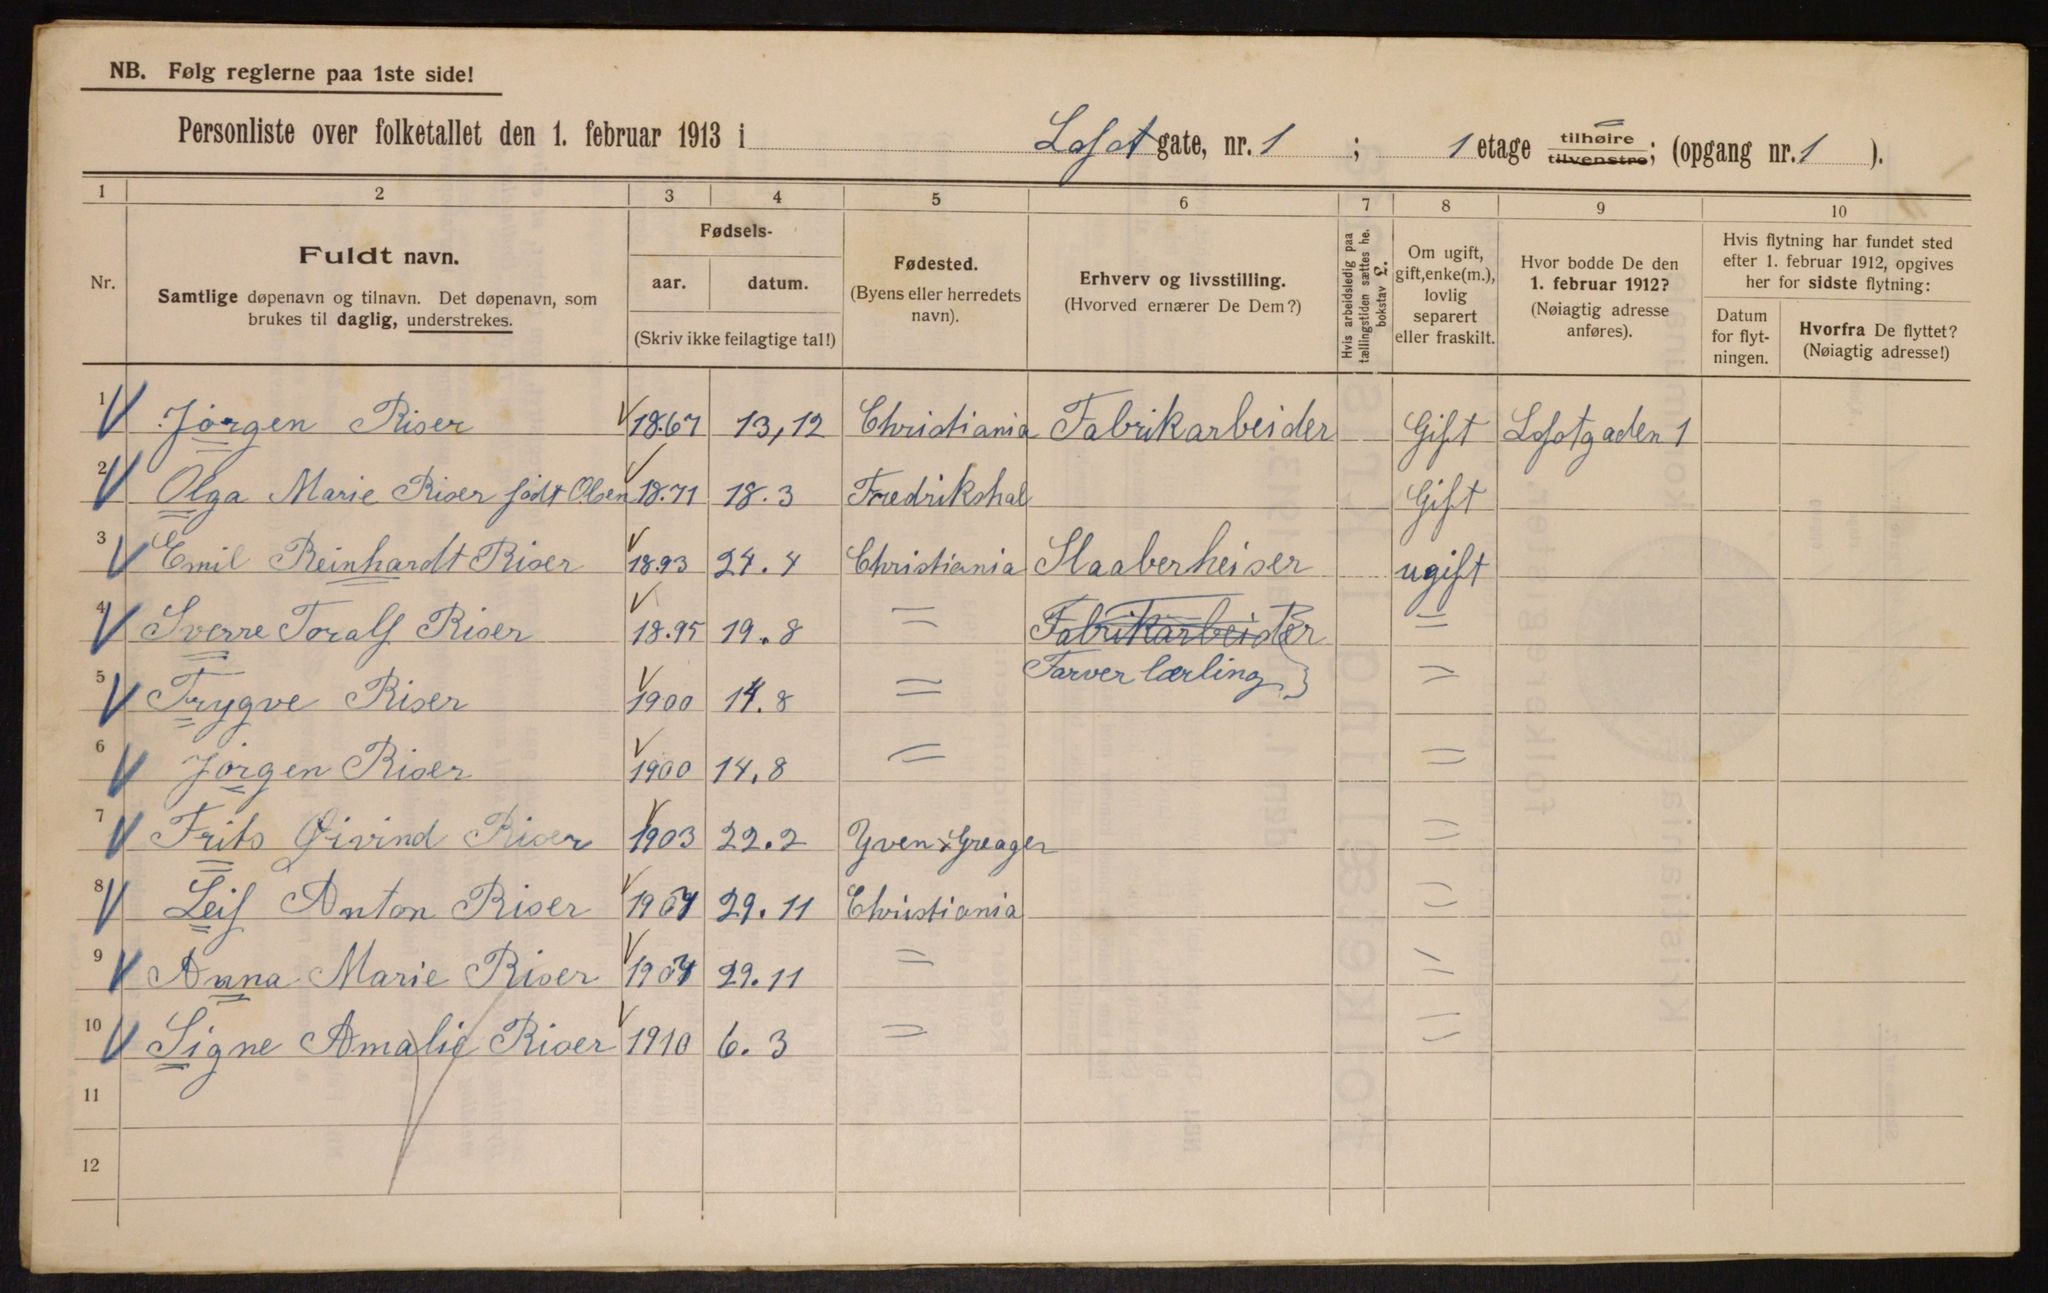 NB. Følg reglerne paa 1ste side!
Personliste over folketallet den 1. februar 1913 i Lofot gate, nr. 1 ; 1 etage tilhøire tilvenstre; (opgang nr. 1 ).
1 2 3 4 5 6 7 8 9 10
Nr.
Fuldt navn.
Samtlige døpenavn og tilnavn. Det døpenavn, som
brukes til daglig, understrekes.
Fødsels-
aar. datum.
(Skriv ikke feilagtige tal!)
Fødested.
(Byens eller herredets
navn).
Erhverv og livsstilling.
(Hvorved ernærer De Dem?)
Hvis arbeidsledig paa
tællingstiden sættes he.
bokstav L.
Om ugift,
gift, enke(m.),
lovlig
separert
eller fraskilt.
Hvor bodde De den
1. februar 1912?
(Nøiagtig adresse
anføres).
Hvis flytning har fundet sted
efter 1. februar 1912, opgives
her for sidste flytning:
Datum
for flyt-
ningen.
Hvorfra De flyttet?
(Nøiagtig adresse!)
1 Jørgen Riser 18.67 13,12 Christiania Fabrikarbeider Gift Lofotgaden 1
2 Olga Marie Riser født Olsen 18.71 18.3 Fredrikshal Gift
3 Emil Reinhardt Riser 18.93 24.4 Christiania Staaberheiser ugift
4 Sverre Toralf Riser 18.95 19.8 = Fabrikarbeider =
Farver lærling
5 Trygve Riser 1900 14.8 = =
6 Jørgen Riser 1900 14.8 = =
7 Frits Øivind Riser 1903 22.2 =
8 Leif Anton Riser 1904 29.11 Christiania =
9 Anna Marie Riser 1904 29.11 = =
10 Signe Amalie Riser 1910 6.3 = =
11
12